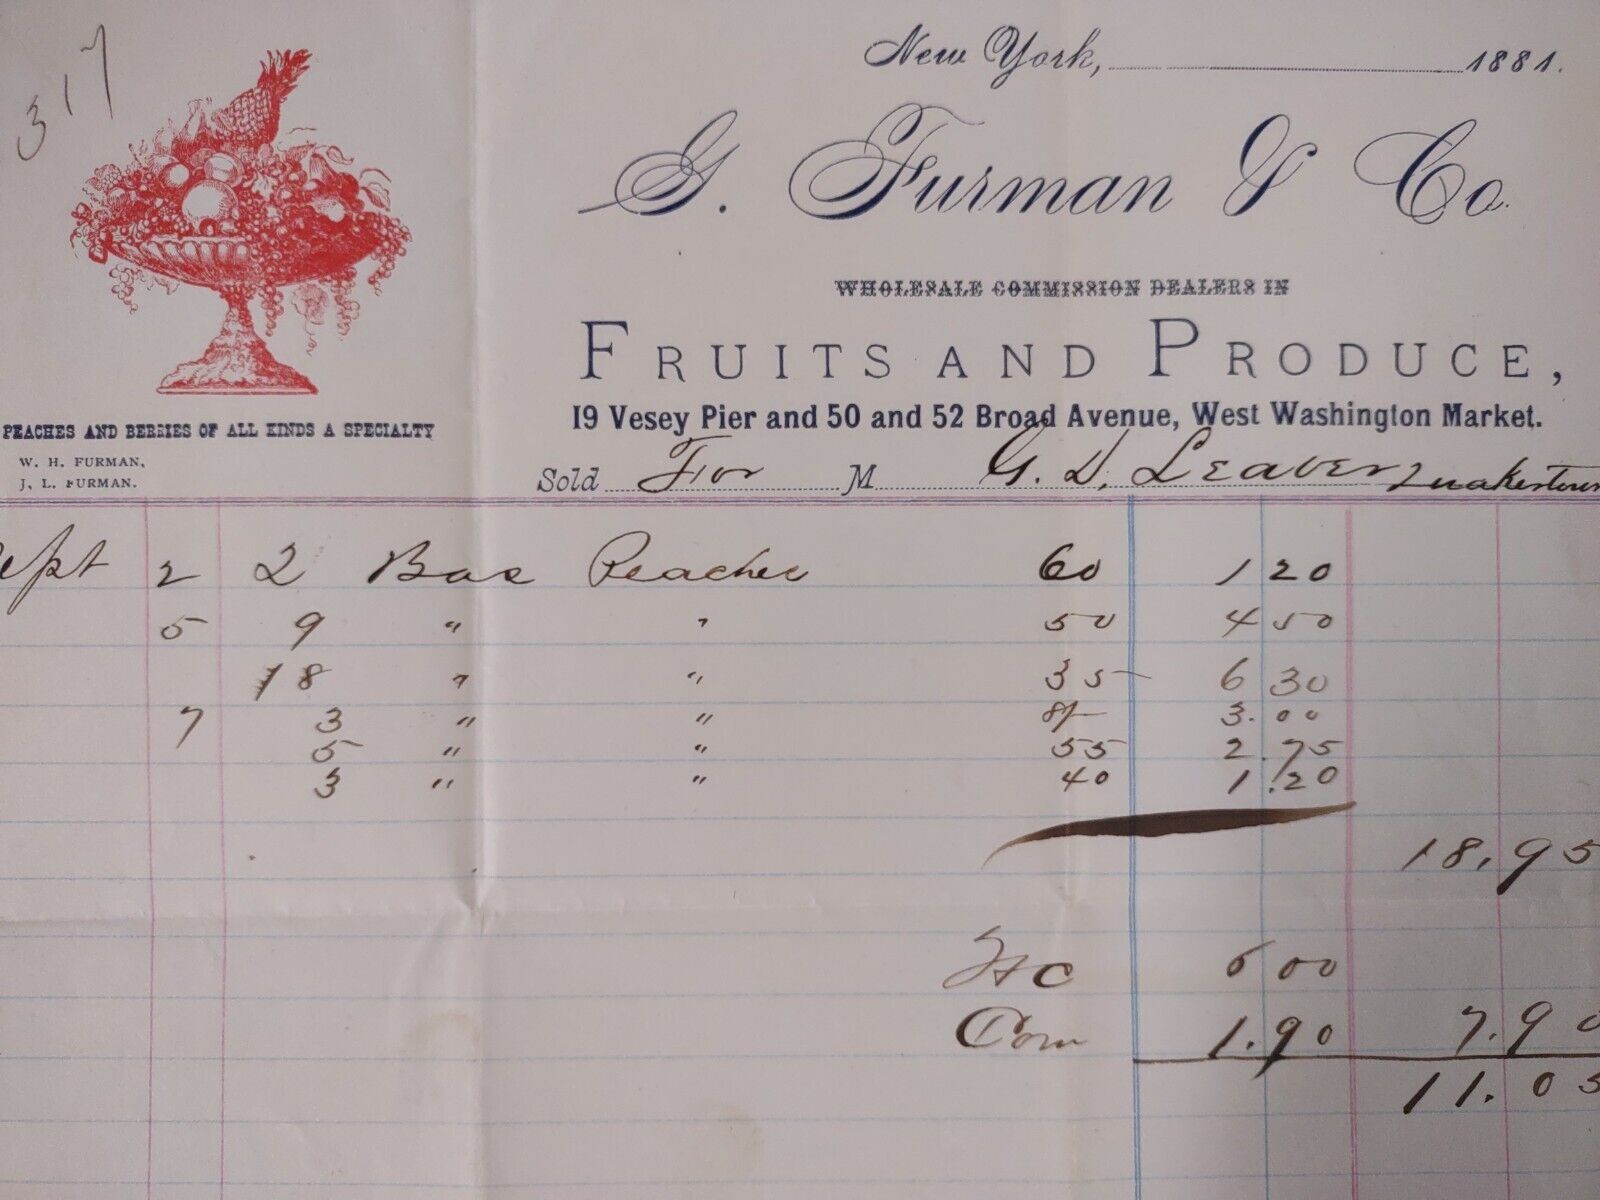 317
New York, 1881.
G. Furman & Co.
WHOLESALE COMMISSION DEALERS IN
FRUITS AND PRODUCE,
19 Vesey Pier and 50 and 52 Broad Avenue, West Washington Market.
PEACHES AND BERRIES OF ALL KINDS A SPECIALTY
W. H. FURMAN,
J. L. FURMAN.
Sold For M G. D. Leaver Quakertown
Sept 2 2 Bas Peaches 60 1 20
5 9 " " 50 4 50
18 " " 35 6 30
7 3 " " 3.00
5 " " 55 2.75
3 " " 40 1.20
18.95
6 00
Com 1.90 7.90
11.05